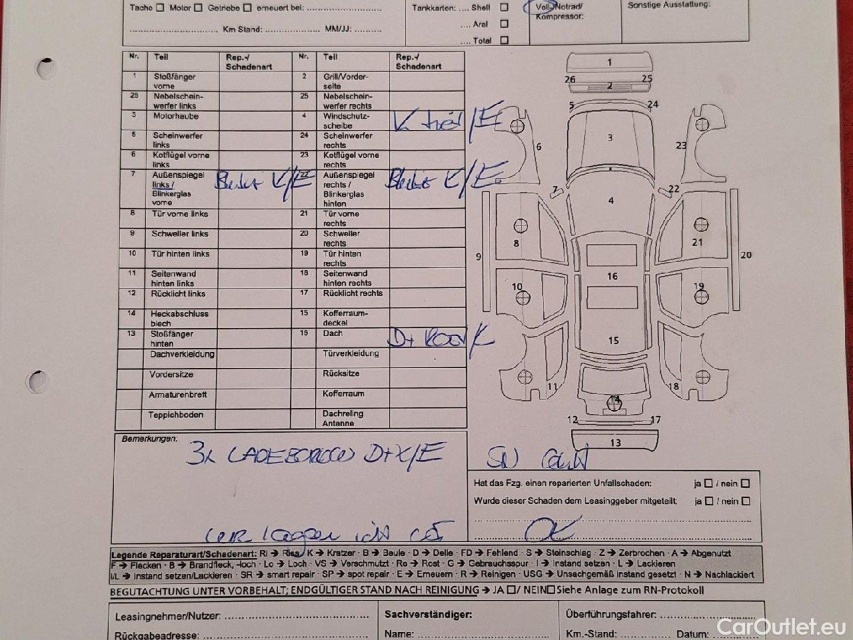 Tacho ☐ Motor ☐ Getriebe ☐ erneuert bei:
Km Stand: MM/JJ:
Tankkarten: Shell ☐
Aral ☐
Total ☐
Voll-/Notrad/
Kompressor:
Sonstige Ausstattung:
Nr. Teil Rep.-/ Schadenart Nr. Teil Rep.-/ Schadenart
1 Stoßfänger vorne 2 Grill/Vorder-seite
26 Nebelschein-werfer links 25 Nebelschein-werfer rechts
3 Motorhaube 4 Windschutz-scheibe K /E
5 Scheinwerfer links 24 Scheinwerfer rechts
6 Kotflügel vorne links 23 Kotflügel vorne rechts
7 Außenspiegel links / Blinkerglas vorne K/E 22 Außenspiegel rechts / Blinkerglas hinten K/E
8 Tür vorne links 21 Tür vorne rechts
9 Schweller links 20 Schweller rechts
10 Tür hinten links 19 Tür hinten rechts
11 Seitenwand hinten links 18 Seitenwand hinten rechts
12 Rücklicht links 17 Rücklicht rechts
14 Heckabschluss blech 15 Kofferraum-deckel
13 Stoßfänger hinten 16 Dach
Dachverkleidung Türverkleidung
Vordersitze Rücksitze
Armaturenbrett Kofferraum
Teppichboden Dachreling Antenne
1
26 25
2
5 24
3
6 23
7 22
4
8 21
9 20
16
10 19
15
11 18
14
12 17
13
Bemerkungen:
3x LADEBODEN D+K/E
Hat das Fzg. einen reparierten Unfallschaden: ja ☐ / nein ☐
Wurde dieser Schaden dem Leasinggeber mitgeteilt: ja ☐ / nein ☐
OK
Legende Reparaturart/Schadenart: Ri → Riss K → Kratzer · B → Beule · D → Delle · FD → Fehlend · S → Steinschlag · Z → Zerbrochen · A → Abgenutzt
F → Flecken · B → Brandfleck, -loch · Lo → Loch · VS → Verschmutzt · Ro → Rost · G → Gebrauchsspur · I → Instand setzen · L → Lackieren
I/L → Instand setzen/Lackieren · SR → smart repair · SP → spot repair · E → Erneuern · R → Reinigen · USG → Unsachgemäß instand gesetzt · N → Nachlackiert
BEGUTACHTUNG UNTER VORBEHALT; ENDGÜLTIGER STAND NACH REINIGUNG → JA ☐ / NEIN ☐ Siehe Anlage zum RN-Protokoll
Leasingnehmer/Nutzer: Sachverständiger: Überführungsfahrer:
Rückgabeadresse: Name: Km.-Stand: Datum:
CarOutlet.eu